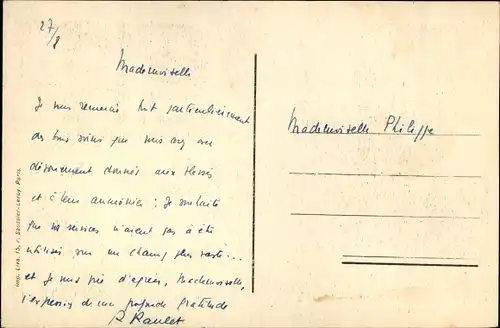 27/8
Mademoiselle
Je vous remercie tout particulièrement
des bons soins que vous avez
dévouement donnés aux blessés
et à leur aumônier : Je souhaite
que vos services n'aient pas à être
utilisés sur un champ plus vaste...
et Je vous prie d'agréer, Mademoiselle,
l'expression de ma profonde gratitude
R Raulet
Mademoiselle Philippe